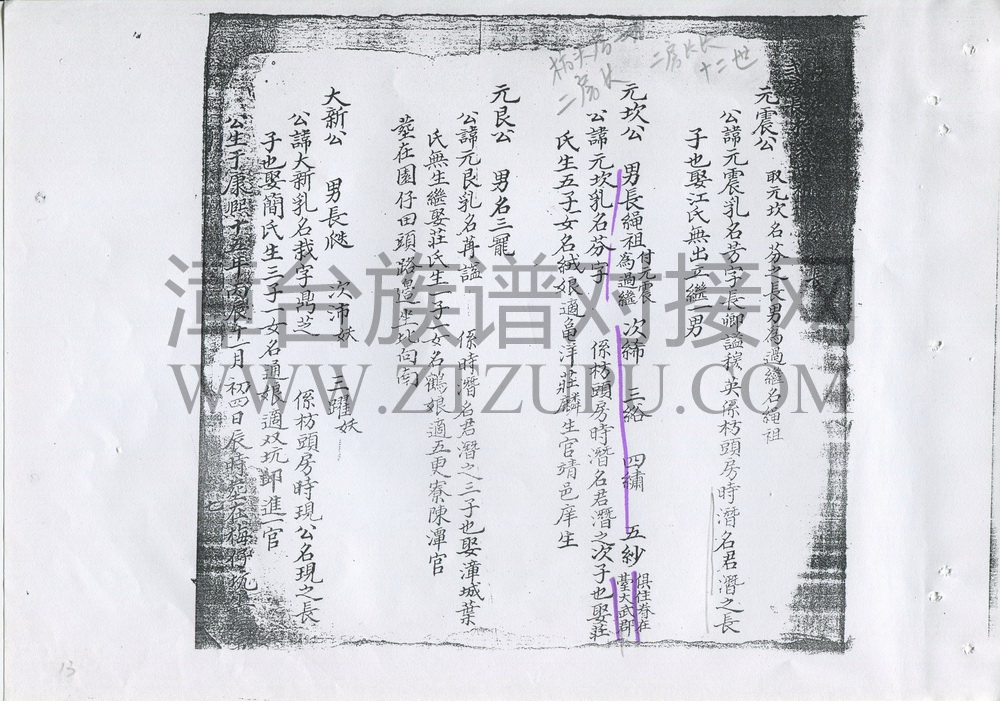 二房长
十二世
二房长
元震公 取元坎名芬之長男為過繼名繩祖
公諱元震乳名芳字長卿謚 英係枋頭房時潛名君潛之長
子也娶江氏無出立繼一男
元坎公 男長繩祖 付元震為過繼 次締 三絡 四繡 五紗 俱住眷在臺大武郡
公諱元坎乳名芬字 係枋頭房時潛名君潛之次子也娶莊
氏生五子一女名絨娘適龜洋莊麟生官靖邑庠生
元艮公 男名三罷
公諱元艮乳名苒謚 係時潛名君潛之三子也娶漳城葉
氏無生繼娶莊氏生一子一女名鶴娘適五更寮陳潬官
塟在園仔田頭路邊坐北向南
大新公 男長 次沛 妖 三躍 妖
公諱大新乳名栽字鼎芝 係枋頭房時現公名現之長
子也娶簡氏生三子一女名適娘適双坑 進一官
公生于康熙十五年丙辰十一月初四日辰時塟在梅
漳台族谱对接网
WWW.ZTZUPU.COM
13